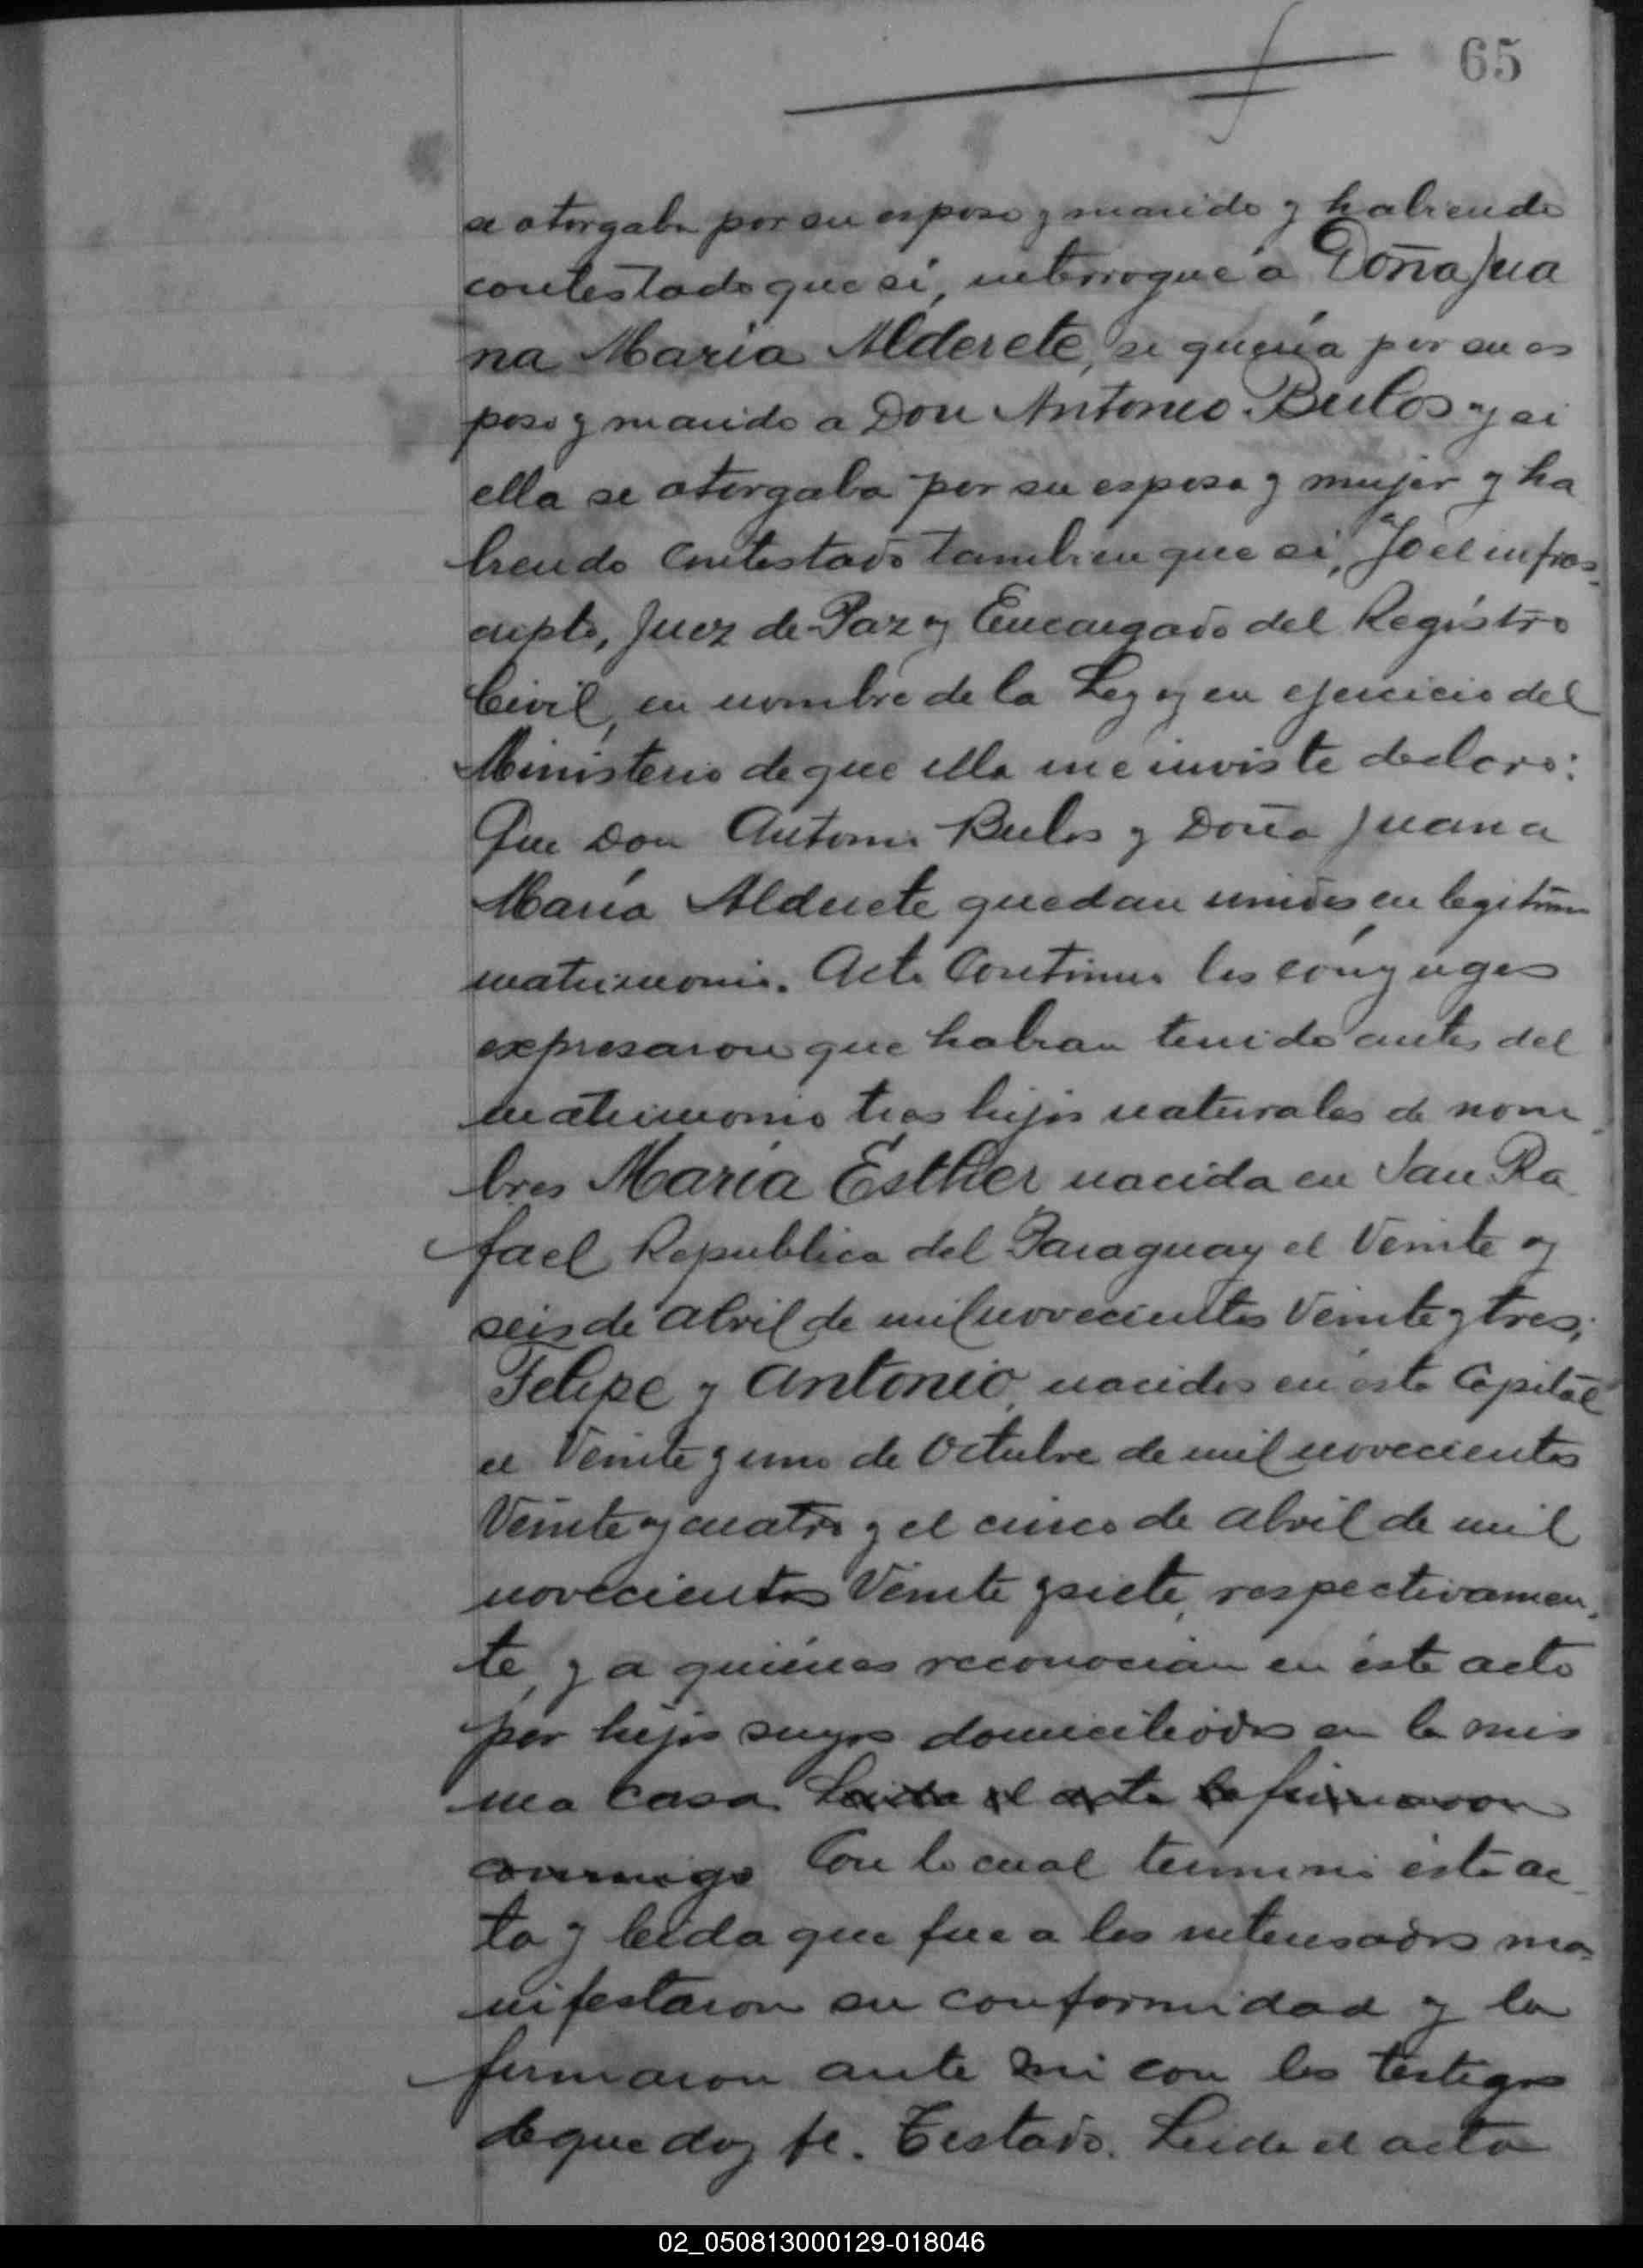 65
se otorgaba por su esposo y marido y habiendo
contestado que sí, interrogué a Doña Jua
na María Alderete, si quería por su es
poso y marido a Don Antonio Bulos y si
ella se otorgaba por su esposa y mujer y ha
biendo contestado tambien que si, Yo el infras-
cripto, Juez de Paz y Encargado del Registro
Civil, en nombre de la Ley y en ejercicio del
Ministerio de que ella me inviste declaro:
Que Don Antonio Bulos y Doña Juana
María Alderete quedan unidos en legitimo
matrimonio. Acto Continuo los cónyuges
expresaron que habian tenido antes del
matrimonio tres hijos naturales de nom-
bres María Esther nacida en San Ra
fael Republica del Paraguay el Veinte y
seis de Abril de mil novecientos Veinte y tres;
Felipe y Antonio, nacidos en ésta Capital
el Veinte y uno de Octubre de mil novecientos
Veinte y cuatro y el cinco de Abril de mil
novecientos Veinte y siete, respectivamen-
te, y a quiénes reconocian en éste acto
por hijos suyos domiciliados en la mis
ma casa. Leida el acta la firmaron
conmigo Con lo cual terminó ésta ac-
ta y leida que fue a los interesados ma-
nifestaron su conformidad y la
firmaron ante mi con los testigos
de que doy fe. Testado. Leida el acta
02_050813000129-018046